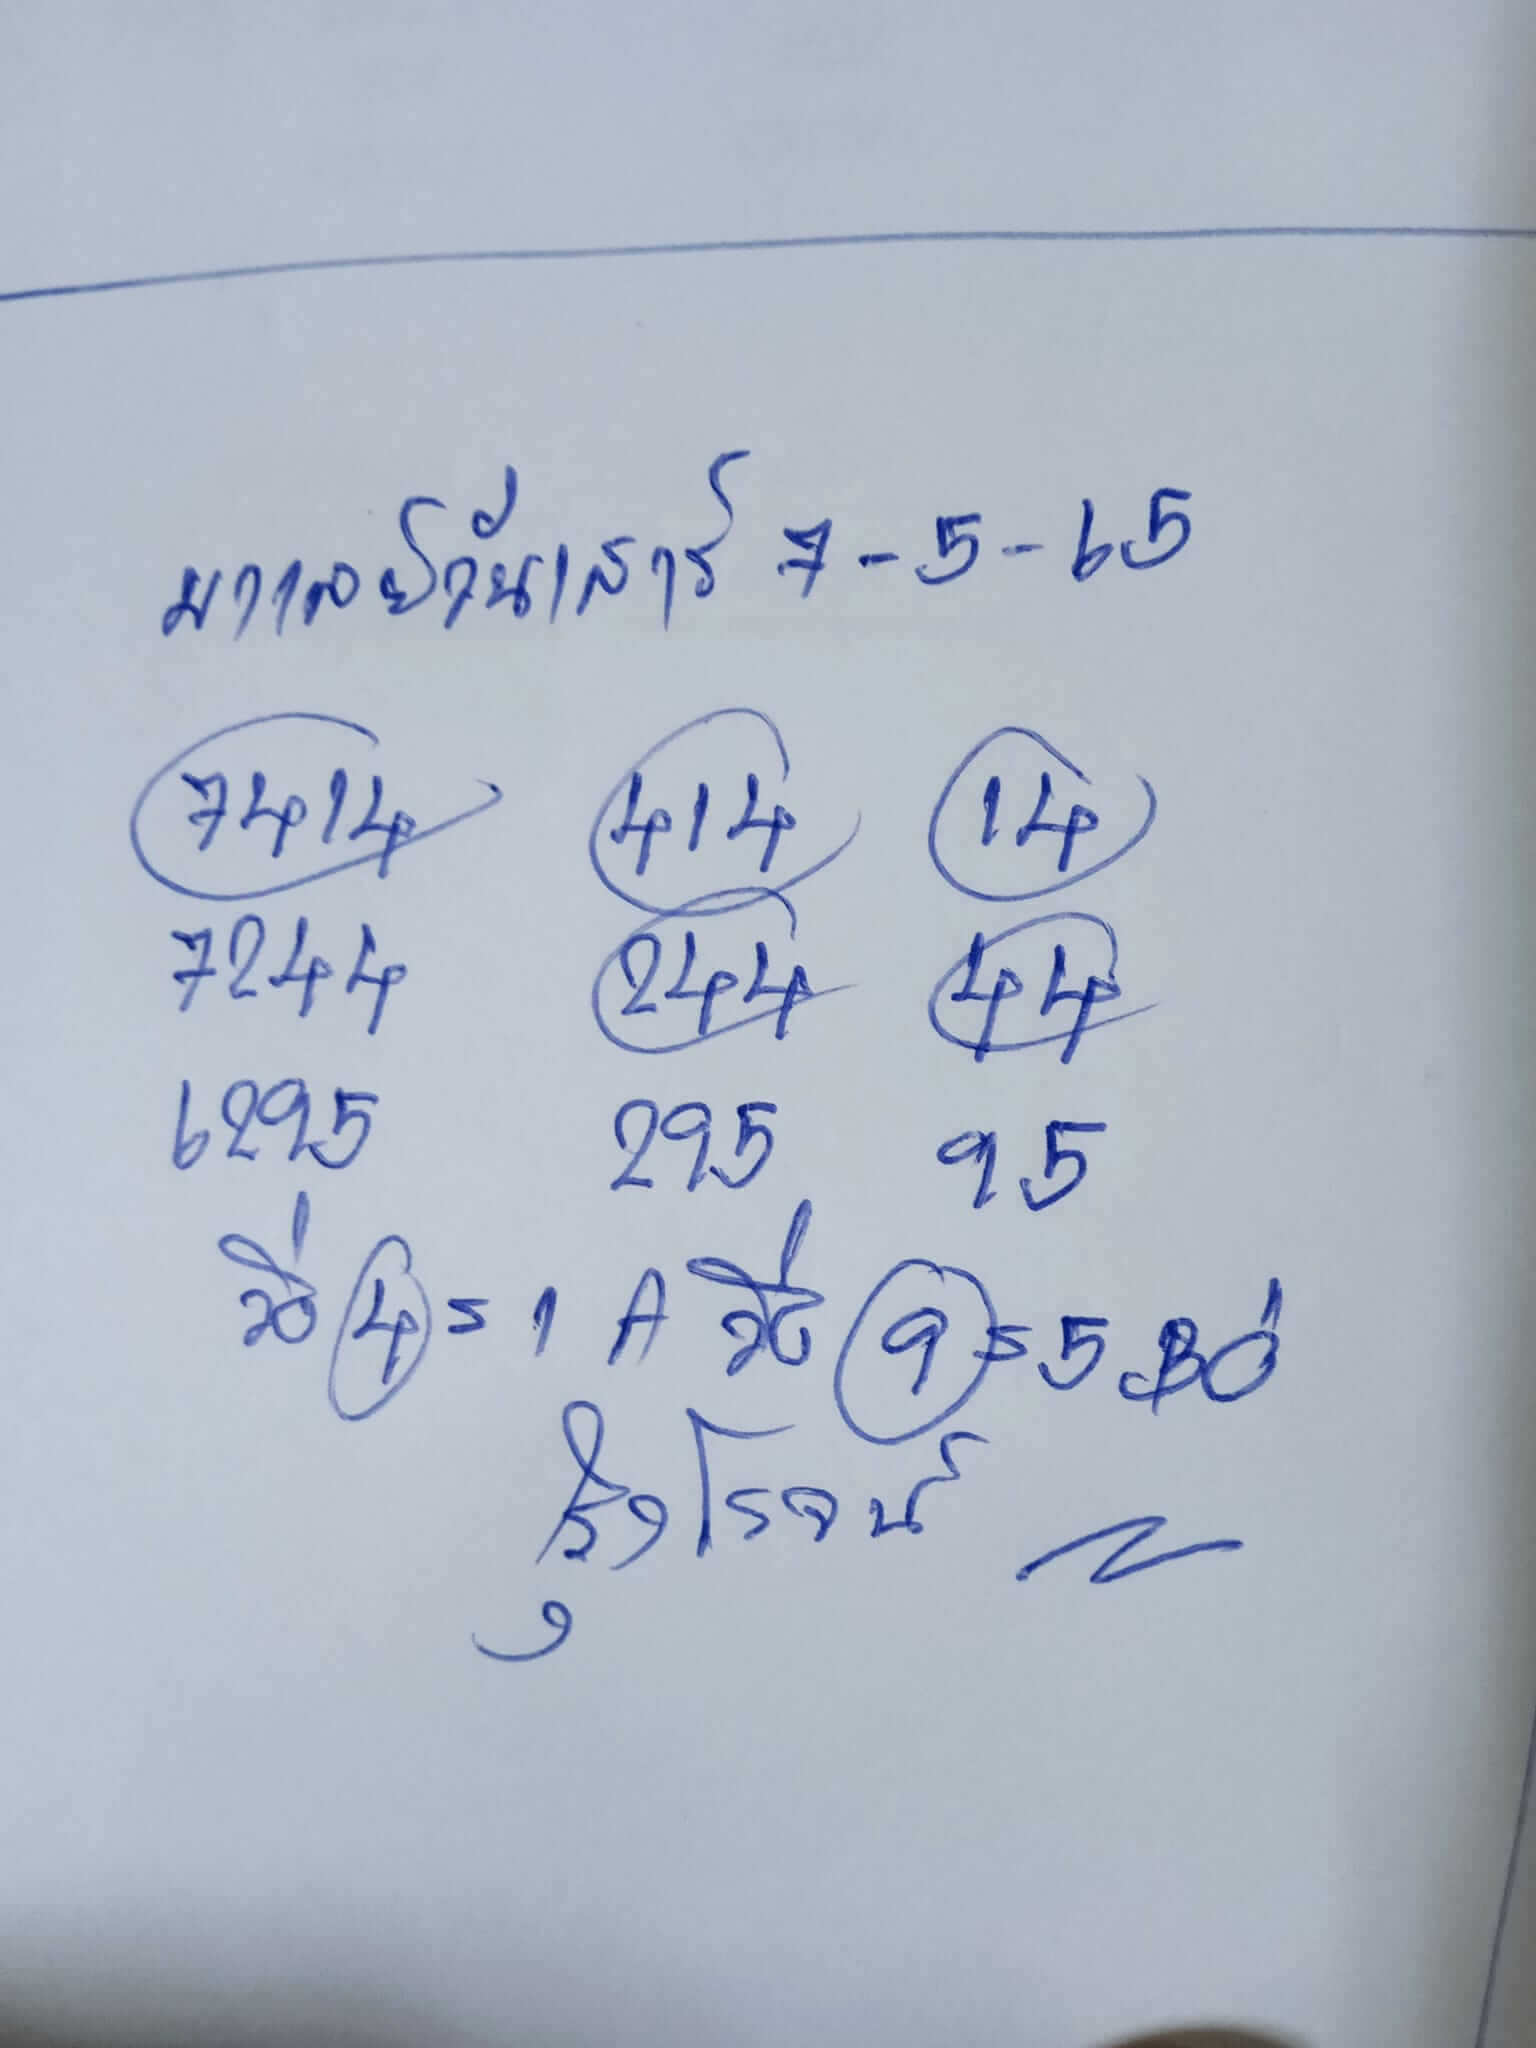 มาเลย์วันเสาร์ 7-5-65
7414 414 14
7244 244 44
6295 295 95
วิ่ 4 = 1 A วิ่ 9 = 5 B
รุ่งโรจน์